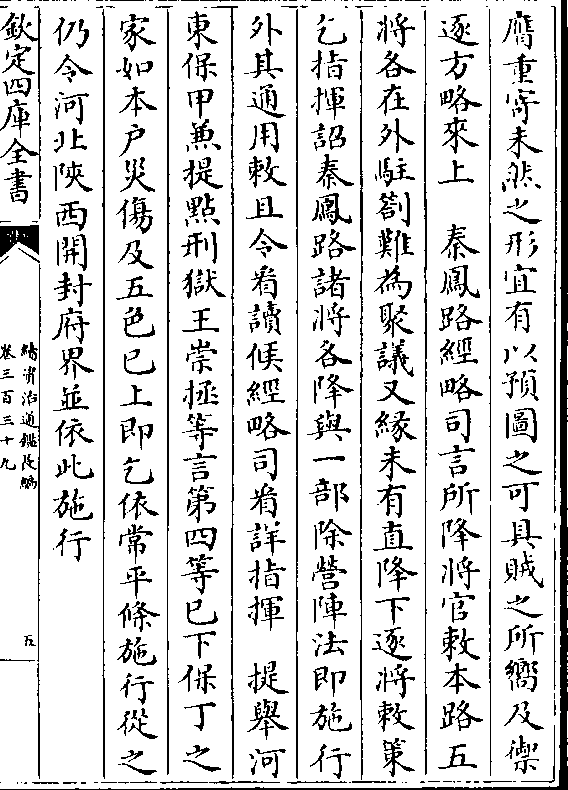 膺重寄未然之形宜有以預圖之可具賊之所嚮及禦
逐方略來上　秦鳳路經略司言所降將官敕本路五
將各在外駐劄難為聚議又緣未有直降下逐將敕策
乞指揮詔秦鳳路諸將各降與一部除營陣法即施行
外其通用敕且令看讀候經略司看詳指揮　提舉河
東保甲兼提點刑獄王崇拯等言第四等已下保丁之
家如本戶災傷及五色已上即乞依常平條施行從之
仍令河北陝西開封府界並依此施行
欽定四庫全書
續資治通鑑長編
卷三百三十九
五